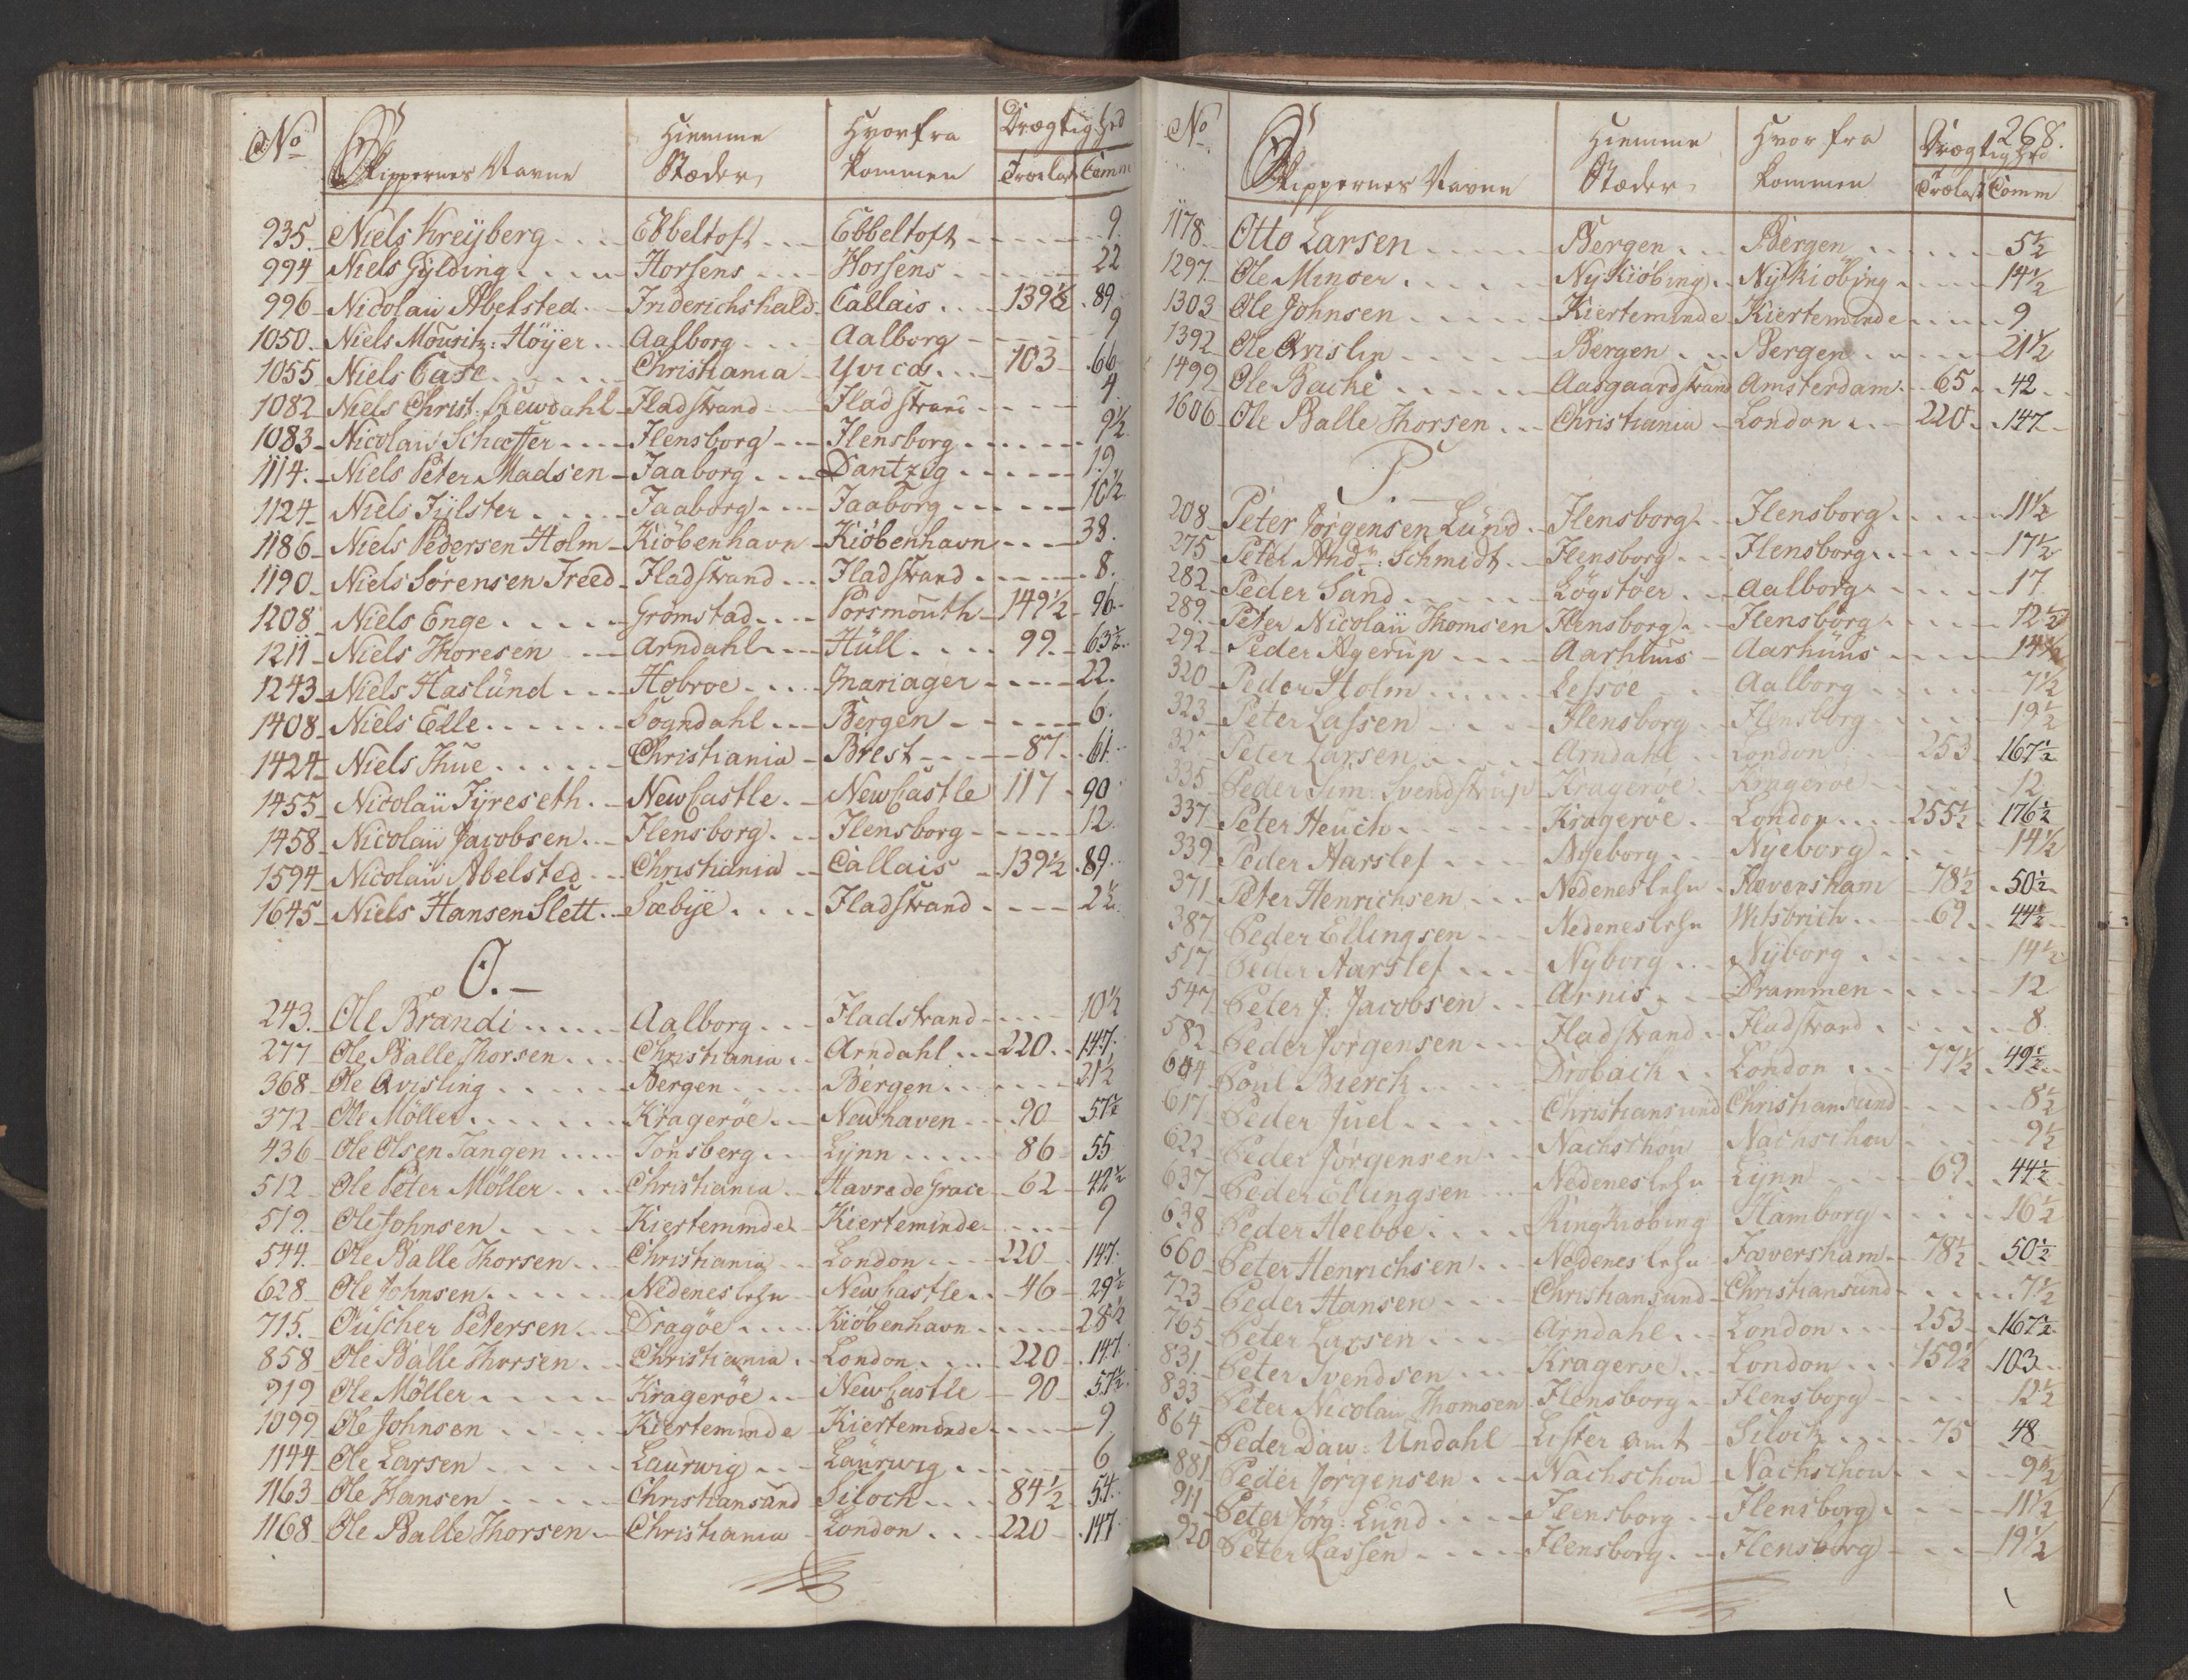 No Skippernes Navne Hiemme Stæder Hvorfra kommen Drægtighed Trælast Comm
935. Niels Kreyberg Ebbeltoft Ebbeltoft 9.
994 Niels Gylding Horsens Horsens 22
996 Nicolaii Abelsted Friderichshald Callais 139½ 89
1050. Niels Mouritz: Höyer Aalborg Aalborg 9
1055 Niels Case Christiania Yvicas 103 66
1082 Niels Christ: Fladstrand Fladstrand 4.
1083 Nicolaii Schæffer Flensborg Flensborg 9½
1114. Niels Peter Madsen Faaborg Dantzig 19
1124 Niels Fylster Faaborg Faaborg 10½
1186 Niels Pedersen Holm Kiöbenhavn Kiöbenhavn 38.
1190 Niels Sörensen Freed Fladstrand Fladstrand 8.
1208 Niels Enge Gromstad Porsmouth 149½ 96
1211 Niels Thoresen Arndahl Hüll 99 63½
1243 Niels Haslünd Hobroe Mariager 22.
1408 Niels Elle Sogndahl Bergen 6.
1424 Niels Thue Christiania Brest 87 61
1455 Nicolaii Fyreseth NewCastle NewCastle 117 90
1458 Nicolaii Jacobsen Flensborg Flensborg 12
1594 Nicolaii Abelsted Christiania Callais 139½ 89
1645 Niels Hansen Slett Sæbye Fladstrand 2½
O.
243. Ole Brandi Aalborg Fladstrand 10½
277 Ole Balle Thorsen Christiania Arndahl 220 147.
368 Ole Qvisling Bergen Bergen 21½
372 Ole Möller Krageröe Newhaven 90 57½
436 Ole Olsen Tangen Tonsberg Lynn 86 55
512 Ole Peter Möller Christiania Havre de Grace 62 42½
519. Ole Johnsen Kierteminde Kierteminde 9
544. Ole Balle Thorsen Christiania London 220 147.
628 Ole Johnsen Nedeneslehn NewCastle 46 29½
715. Püscher Petersen Dragöe Kiöbenhavn 28½
858 Ole Balle Thorsen Christiania London 220 147
919 Ole Möller Krageröe NewCastle 90 57½
1099 Ole Johnsen Kierteminde Kierteminde 9
1144 Ole Larsen Laurwig Laurwig 6
1163 Ole Hansen Christiansand Siloch 84½ 54.
1168 Ole Balle Thorsen Christiania London 220 147
268.
No Skippernes Navne Hiemme Stæder Hvorfra kommen Drægtighed Trælast Comm
1178 Otto Larsen Bergen Bergen 5½
1297 Ole Minoer Nykiöbing Nykiöbing 14½
1303 Ole Johnsen Kierteminde Kierteminde 9
1392 Ole Qvislin Bergen Bergen 21½
1499 Ole Backe Aasgaardstrand Amsterdam 65 42
1606 Ole Balle Thorsen Christiania London 220 147
P.
208 Peter Jörgensen Lünd Flensborg Flensborg 11½
275 Peter And: Schmidt Flensborg Flensborg 17½
282 Peder Sand Lögstöer Aalborg 17
289. Peter Nicolaii Thomsen Flensborg Flensborg 12½
292 Peder Agerüp Aarhuus Aarhuus 14½
320 Peder Holm Lessoe Aalborg 7½
323 Peter Lassen Flensborg Flensborg 19½
Peter Larsen Arndahl London 253 167½
335 Peder Sim: Svendstrüp Krageröe Krageröe 12
337 Peter Heuch Krageröe London 255½ 176½
339 Peder Aarslef Nyeborg Nyeborg 14½
371 Peter Henrichsen Nedeneslehn Fæversham 78½ 50½
387 Peder Ellingsen Nedeneslehn Witsbrich 69 44½
517 Peder Aarslef Nyborg Nyborg 14½
547 Peter J: Jacobsen Arnis Drammen 12
582 Peder Jörgensen Fladstrand Fladstrand 8
604 Poul Bierck Dröback London 77½ 49½
617 Peder Juel Christiansund Christiansund 8½
622 Peder Jörgensen Nachschou Nachschou 9½
637 Peder Ellingsen Nedeneslehn Lynn 69 44½
638 Peder Heeboe Ringkiobing Hamborg 16½
660 Peter Henrichsen Nedeneslehn Fæversham 78½ 50½
723 Peder Hansen Christiansund Christiansund 7½
765 Peter Larsen Arndahl London 253 167½
831 Peter Svendsen Krageroe London 159½ 103
833 Peter Nicolaii Thomsen Flensborg Flensborg 12½
864 Peder Daw: Undahl Lister amt Silock 75 48
881 Peder Jörgensen Nachschou Nachschou 9½
911 Peter Jörg: Lund Flensborg Flensborg 11½
920 Peter Lassen Flensborg Flensborg 19½